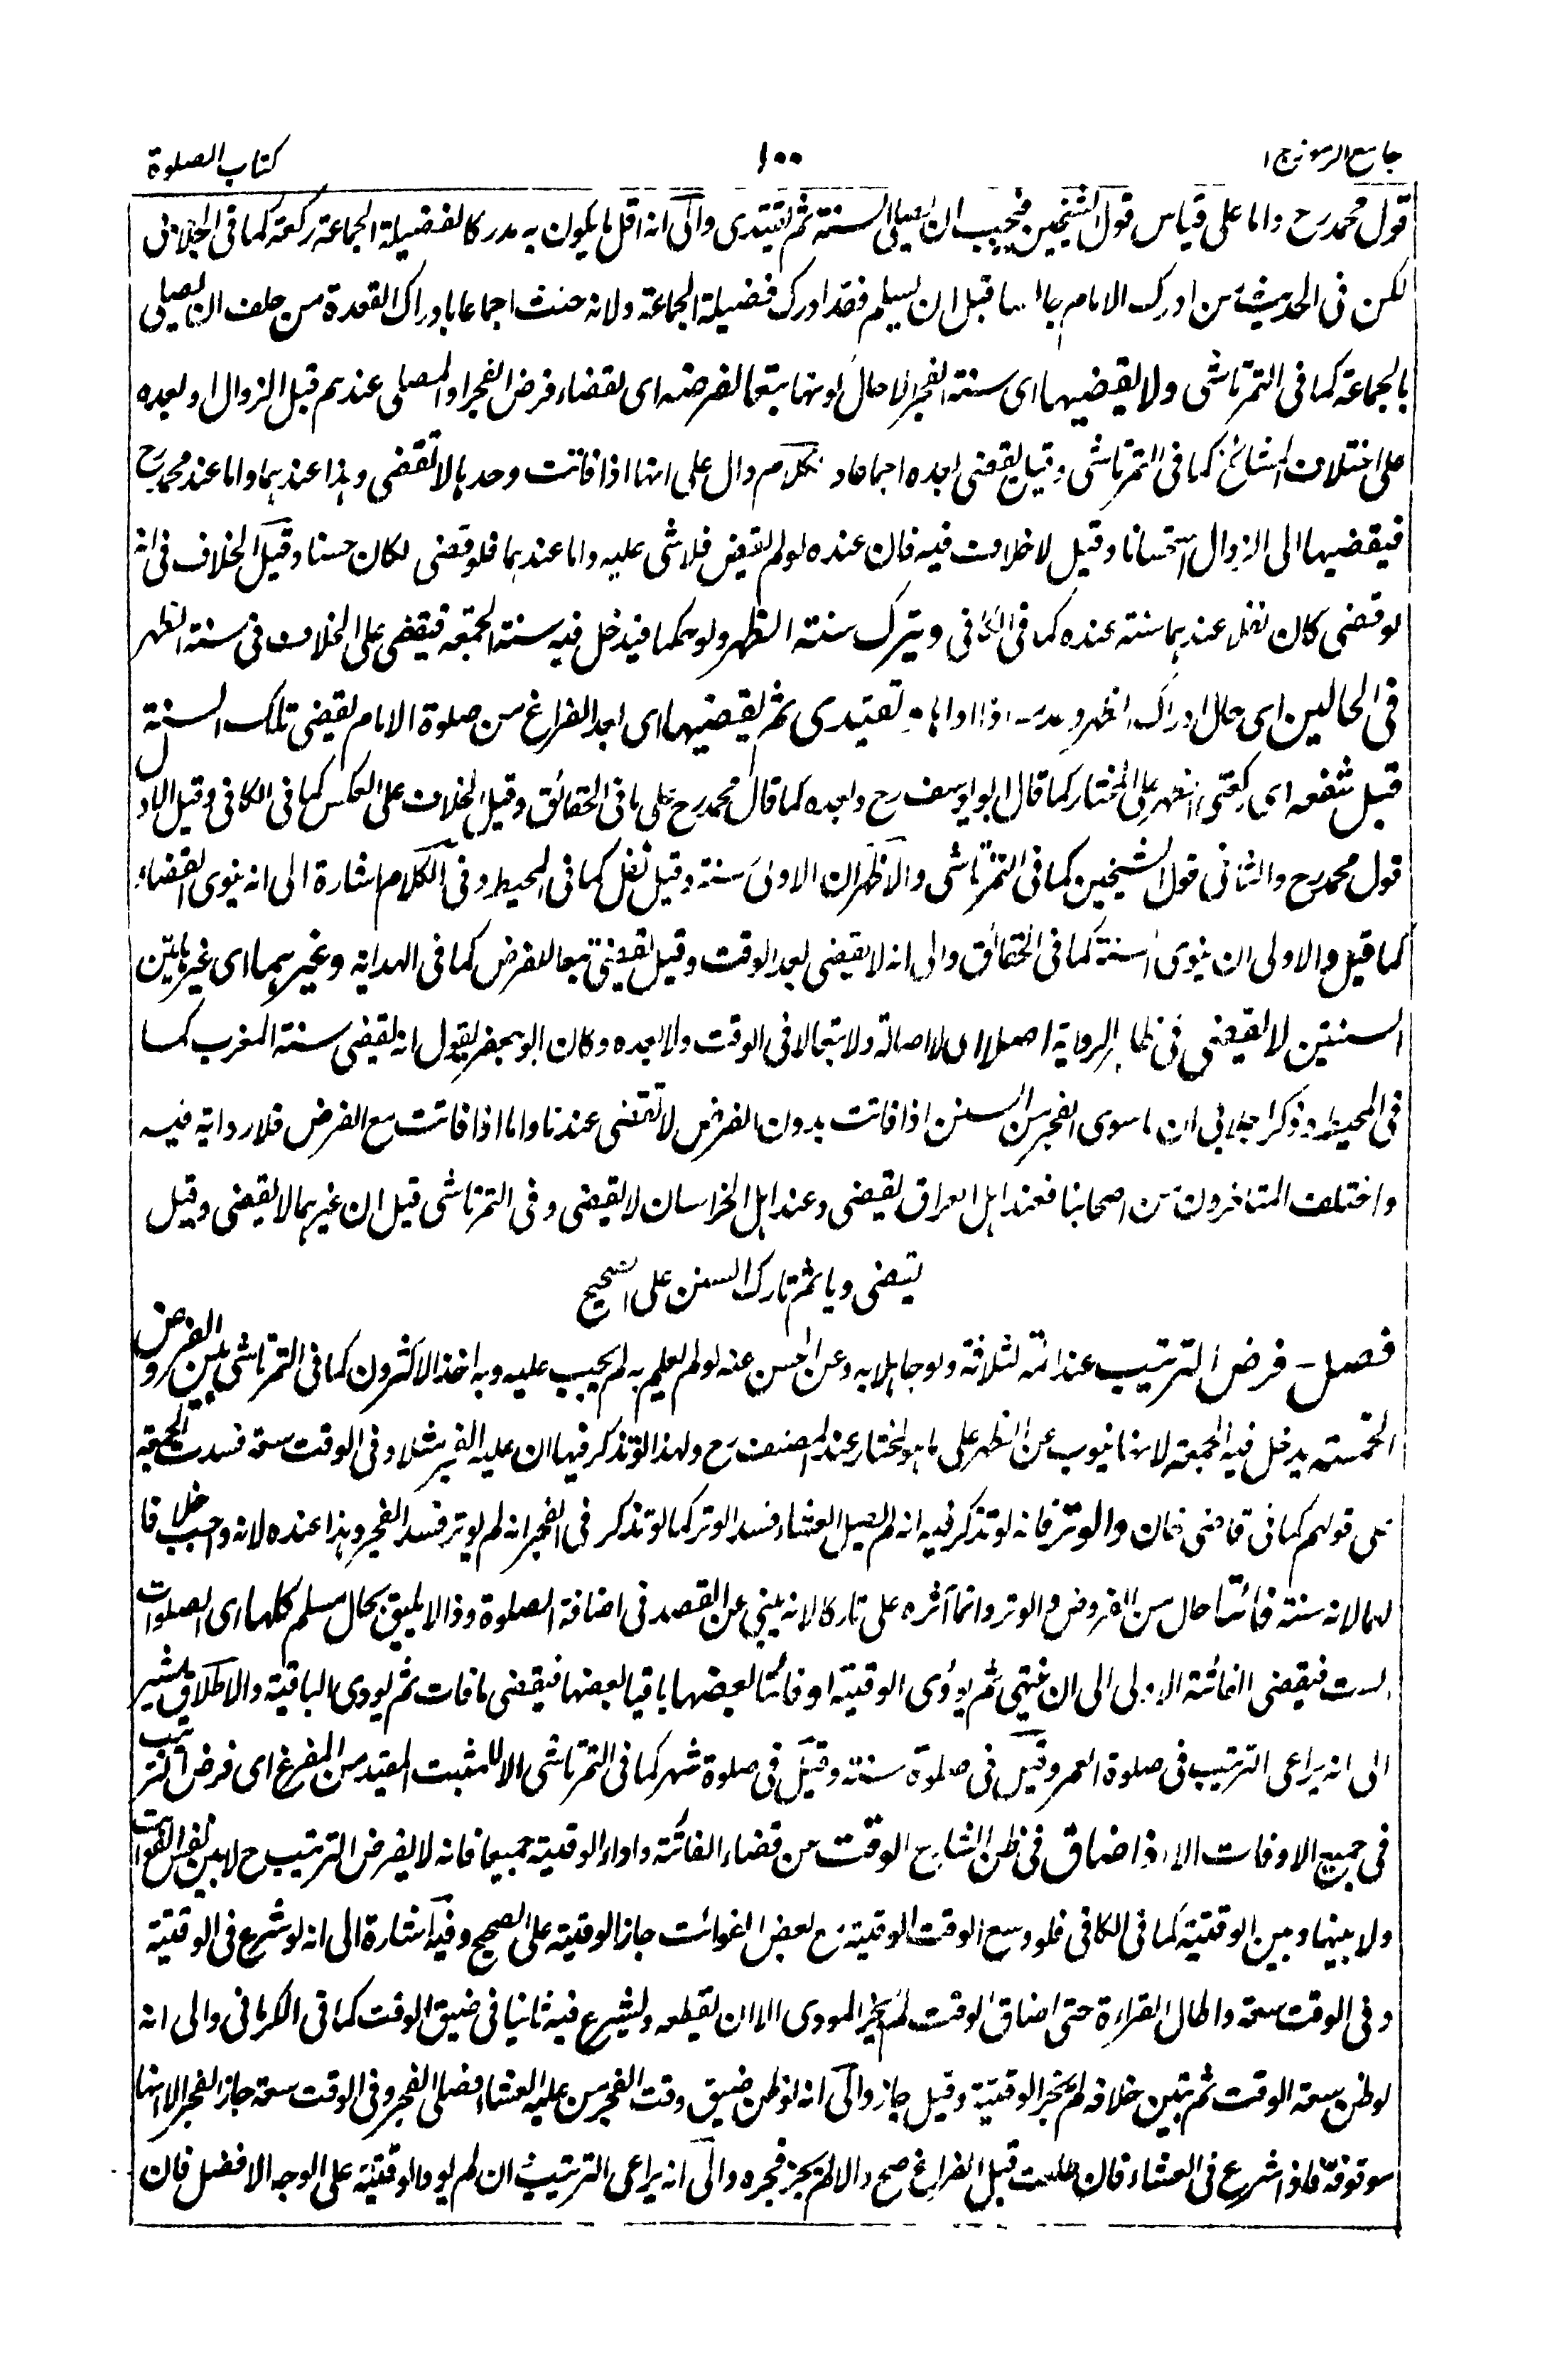 جامع الرموز ج ۱
۱۰۰
كتاب الصلوة
قول محمد رح واما على قياس قول الشيخين فيجيب ان يصلى السنة ثم يقتدى والى انه اقل ما يكون به مدركا لفضيلة الجماعة ركعة كما فى الجلابى
لكن فى الحديث من ادرك الامام قبل ان يسلم فقد ادرك فضيلة الجماعة ولانه حنث اجماعا بادراك القعدة من حلف ان يصلى
بالجماعة كما فى التمرتاشى ولا يقضيها اى سنة الفجر الا حال كونها تبعا لفرضه اى لقضاء فرض الفجر او المصلى عندهم قبل الزوال او بعده
على اختلاف المشائخ كما فى التمرتاشى وقيل يقضى بعده اجماعا والكلام دال على انها اذا فاتت وحدها لا تقضى وهذا عندهما واما عند محمد رح
فيقضيها الى الزوال استحسانا وقيل لا خلاف فيه فان عنده لو لم يقض فلا شى عليه واما عندهما فلو قضى لكان حسنا وقيل الخلاف فى انه
لو قضى كان نفلا عندهما سنة عنده كما فى الكافى ويترك سنة الظهر ولو حكما فيدخل فيه سنة الجمعة فيقضى على الخلاف فى سنة الظهر
فى الحالين اى حال ادراك الظهر وعدمه يقتدى ثم يقضيها اى بعد الفراغ من صلوة الامام يقضى تلك السنة
قبل شفعه اى ركعتى الظهر على المختار كما قال ابو يوسف رح وبعده كما قال محمد رح على ما فى الحقائق وقيل الخلاف على العكس كما فى الكافى وقيل الاول
قول محمد رح والثانى قول الشيخين كما فى التمرتاشى والاظهر ان الاولى سنة وقيل نفل كما فى المحيط وفى الكلام اشارة الى انه ينوى القضاء
كما قيل والاولى ان ينوى السنة كما فى الحقائق والى انه لا يقضى بعد الوقت وقيل يقضى تبعا للفرض كما فى الهداية وغيرهما اى غير هاتين
السنتين لا يقضى فى ظاهر الرواية اصلا اى لا اصالة ولا تبعا لا فى الوقت ولا بعده وكان ابو جعفر يقول انه يقضى سنة المغرب كما
فى المحيط وذكر الجلابى ان ما سوى الفجر من السنن اذا فاتت بدون الفرض لا تقضى عندنا واما اذا فاتت مع الفرض فلا رواية فيه
واختلف المتاخرون من اصحابنا فعند اهل العراق يقضى وعند اهل الخراسان لا يقضى وفى التمرتاشى قيل ان غيرهما لا يقضى وقيل
يقضى وياثم تارك السنن على الصحيح
فصل فرض الترتيب عند ائمة الثلاثة ولو جاهلا به وعن الحسن عنه لو لم يعلم به لم يجب عليه وبه اخذ الاكثرون كما فى التمرتاشى بين الفروض
الخمسة يدخل فيه الجمعة لانها ينوب عن الظهر على ما هو المختار عند المصنف رح ولهذا لو تذكر فيها ان عليه الفجر مثلا وفى الوقت سعة فسدت الجمعة
على قولهم كما فى قاضى خان والوتر فانه لو تذكر فيه انه لم يصل العشاء فسد الوتر كما لو تذكر فى الفجر انه لم يوتر فسد الفجر وهذا عنده لانه واجب خلافا
لهما لانه سنة فائتا حال من الفروض والوتر وانما آثره على تاركا لانه ينبئ عن القصد فى اضافة الصلوة وذا لا يليق بحال مسلم كلها اى الصلوات
الست فيقضى الفائتة الاولى الى ان ينتهى ثم يؤدى الوقتية او فائتا بعضها باقيا بعضها فيقضى ما فات ثم يودى الباقية والاطلاق مشير
الى انه يراعى الترتيب فى صلوة العمر وقيل فى صلوة سنة وقيل فى صلوة شهر كما فى التمرتاشى الا للمثبت المقيد من المفرغ اى فرض الترتيب
فى جميع الاوقات الا اذا ضاق فى ظن الشارع الوقت من قضاء الفائتة واداء الوقتية جميعا فانه لا يفرض الترتيب ح لا بين نفس الفوائت
ولا بينها وبين الوقتية كما فى الكافى فلو وسع الوقت الوقتية مع بعض الفوائت جاز الوقتية على الصحيح وفيه اشارة الى انه لو شرع فى الوقتية
وفى الوقت سعة واطال القراءة حتى اضاق الوقت لم يجز المودى الا ان يقطعه ويشرع فيه ثانيا فى ضيق الوقت كما فى الكرمانى والى انه
لو ظن سعة الوقت ثم تبين خلافه لم يجز الوقتية وقيل جاز والى انه لو ظن ضيق وقت الفجر من عليه العشاء فصلى الفجر وفى الوقت سعة جاز الفجر الا انها
موقوفة فاذا شرع فى العشاء فان طلعت قبل الفراغ صح والا لم يجز فجره والى انه يراعى الترتيب ان لم يود الوقتية على الوجه الافضل فان